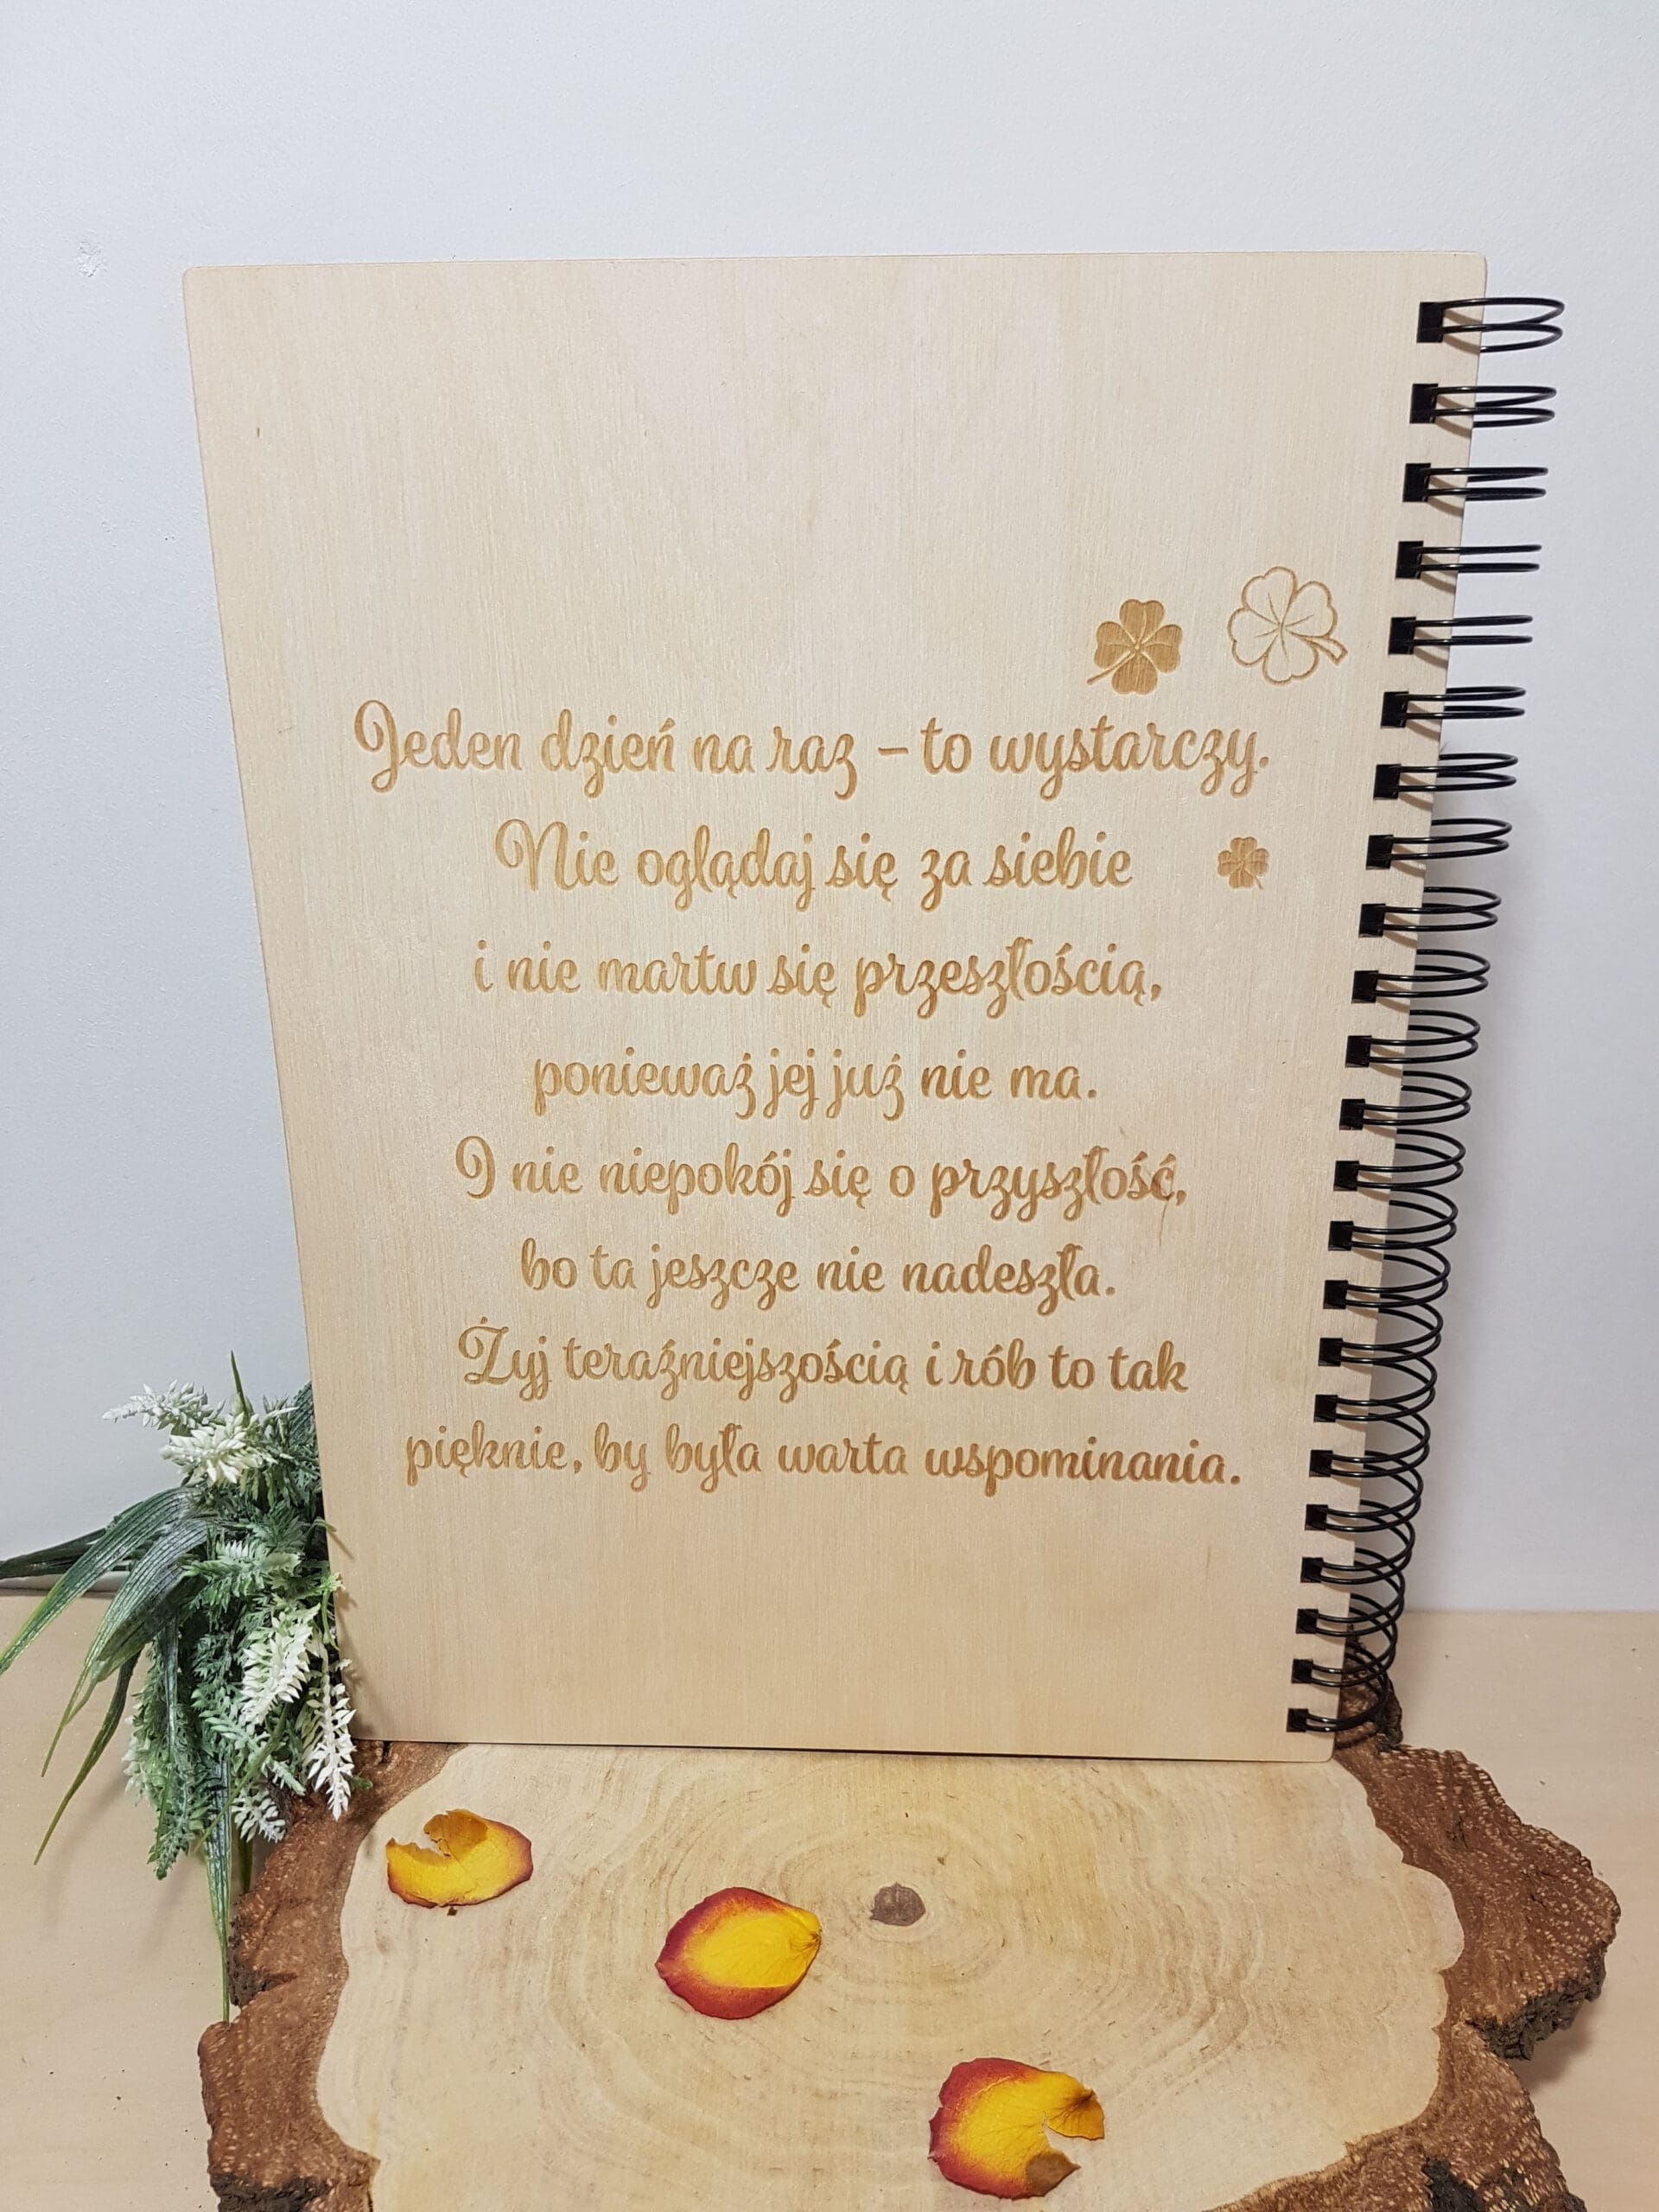 Jeden dzień na raz – to wystarczy.
Nie oglądaj się za siebie
i nie martw się przeszłością,
ponieważ jej już nie ma.
I nie niepokój się o przyszłość,
bo ta jeszcze nie nadeszła.
Żyj teraźniejszością i rób to tak
pięknie, by była warta wspominania.